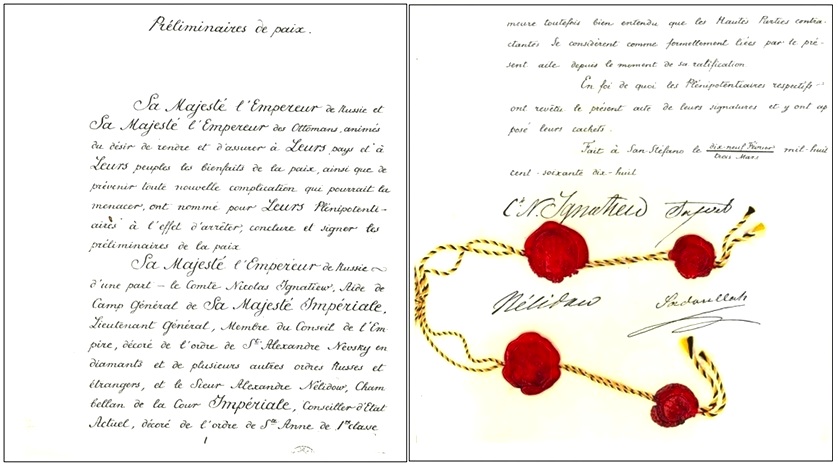 Préliminaires de paix.
Sa Majesté l'Empereur de Russie et
Sa Majesté l'Empereur des Ottomans, animés
du désir de rendre et d'assurer à Leurs pays et à
Leurs peuples les bienfaits de la paix, ainsi que de
prévenir toute nouvelle complication qui pourrait la
menacer, ont nommé pour Leurs Plénipotenti-
aires à l'effet d'arrêter, conclure et signer les
préliminaires de la paix
Sa Majesté l'Empereur de Russie
d'une part – le Comte Nicolas Ignatiew, Aide de
Camp Général de Sa Majesté Impériale,
Lieutenant Général, Membre du Conseil de l'Em-
pire, décoré de l'ordre de St. Alexandre Nevsky en
diamants et de plusieurs autres ordres Russes et
étrangers, et le Sieur Alexandre Nélidow, Cham
bellan de la Cour Impériale, Conseiller d'Etat
Actuel, décoré de l'ordre de Ste Anne de 1re classe
1
meure toutefois bien entendu que les Hautes Parties contra-
ctantes Se considèrent comme formellement liées par le pré-
sent acte depuis le moment de sa ratification
En foi de quoi les Plénipotentiaires respectifs
ont revêtu le présent acte de leurs signatures et y ont ap
posé leurs cachets.
Fait à San-Stéfano le dix-neuf Février
trois Mars
mil-huit
cent-soixante dix-huit
Cte N. Ignatiew Safvet
Nélidow Sadoullah